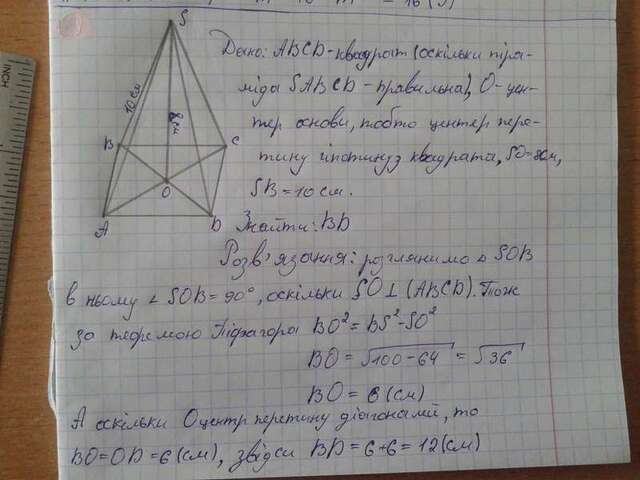 S
10 см
8 см
B
C
O
A
D
Дано: ABCD-квадрат (оскільки піра-
міда SABCD - правильна), O-цен-
тер основи, тобто центер пере-
тину гіпотинуз квадрата, SO=8см,
SB=10 см.
Знайти: BD
Розв'язання: розглянимо ∆ SOB
в ньому ∠ SOB = 90°, оскільки SO⊥(ABCD). Тож
за теоремою Піфагора BO²= BS²-SO²
BO = √100-64 = √36
BO = 6 (см)
А оскільки O центр перетину діагоналей, то
BO=OD=6(см), звідси BD=6+6=12(см)